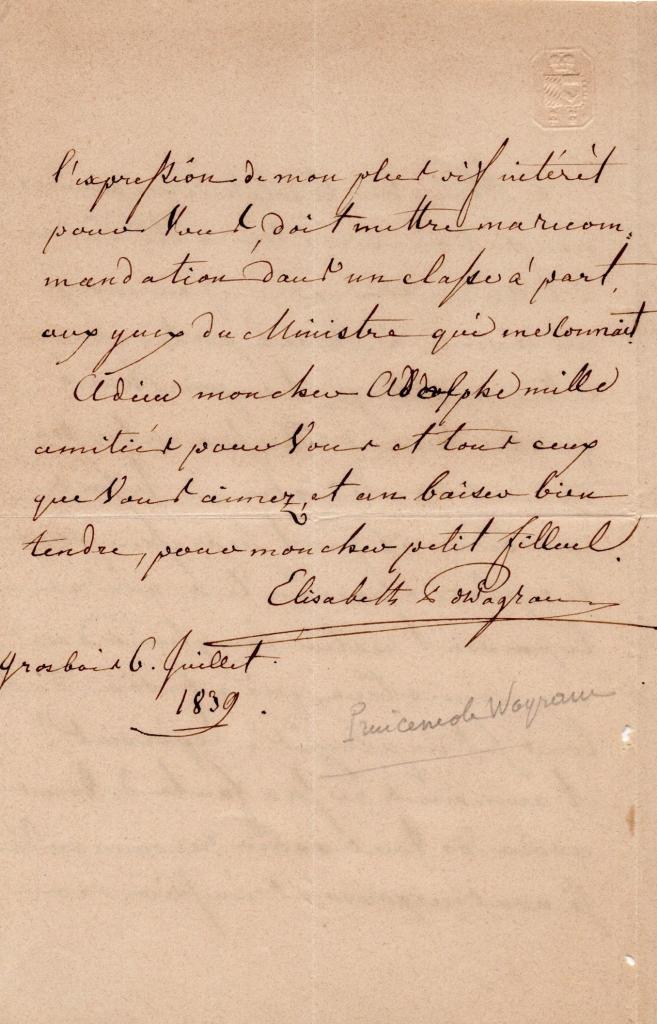 l'expression de mon plus vif intérêt
pour Vous, doit mettre ma recom-
mandation dans un classe à part,
aux yeux du Ministre qui me connait.
Adieu mon cher Adolphe mille
amitiés pour Vous et tous ceux
que Vous aimez, et un baiser bien
tendre, pour mon cher petit filleul.
Elisabeth P. de Wagram
Grosbois 6. Juillet.
1839.
Princesse de Wagram